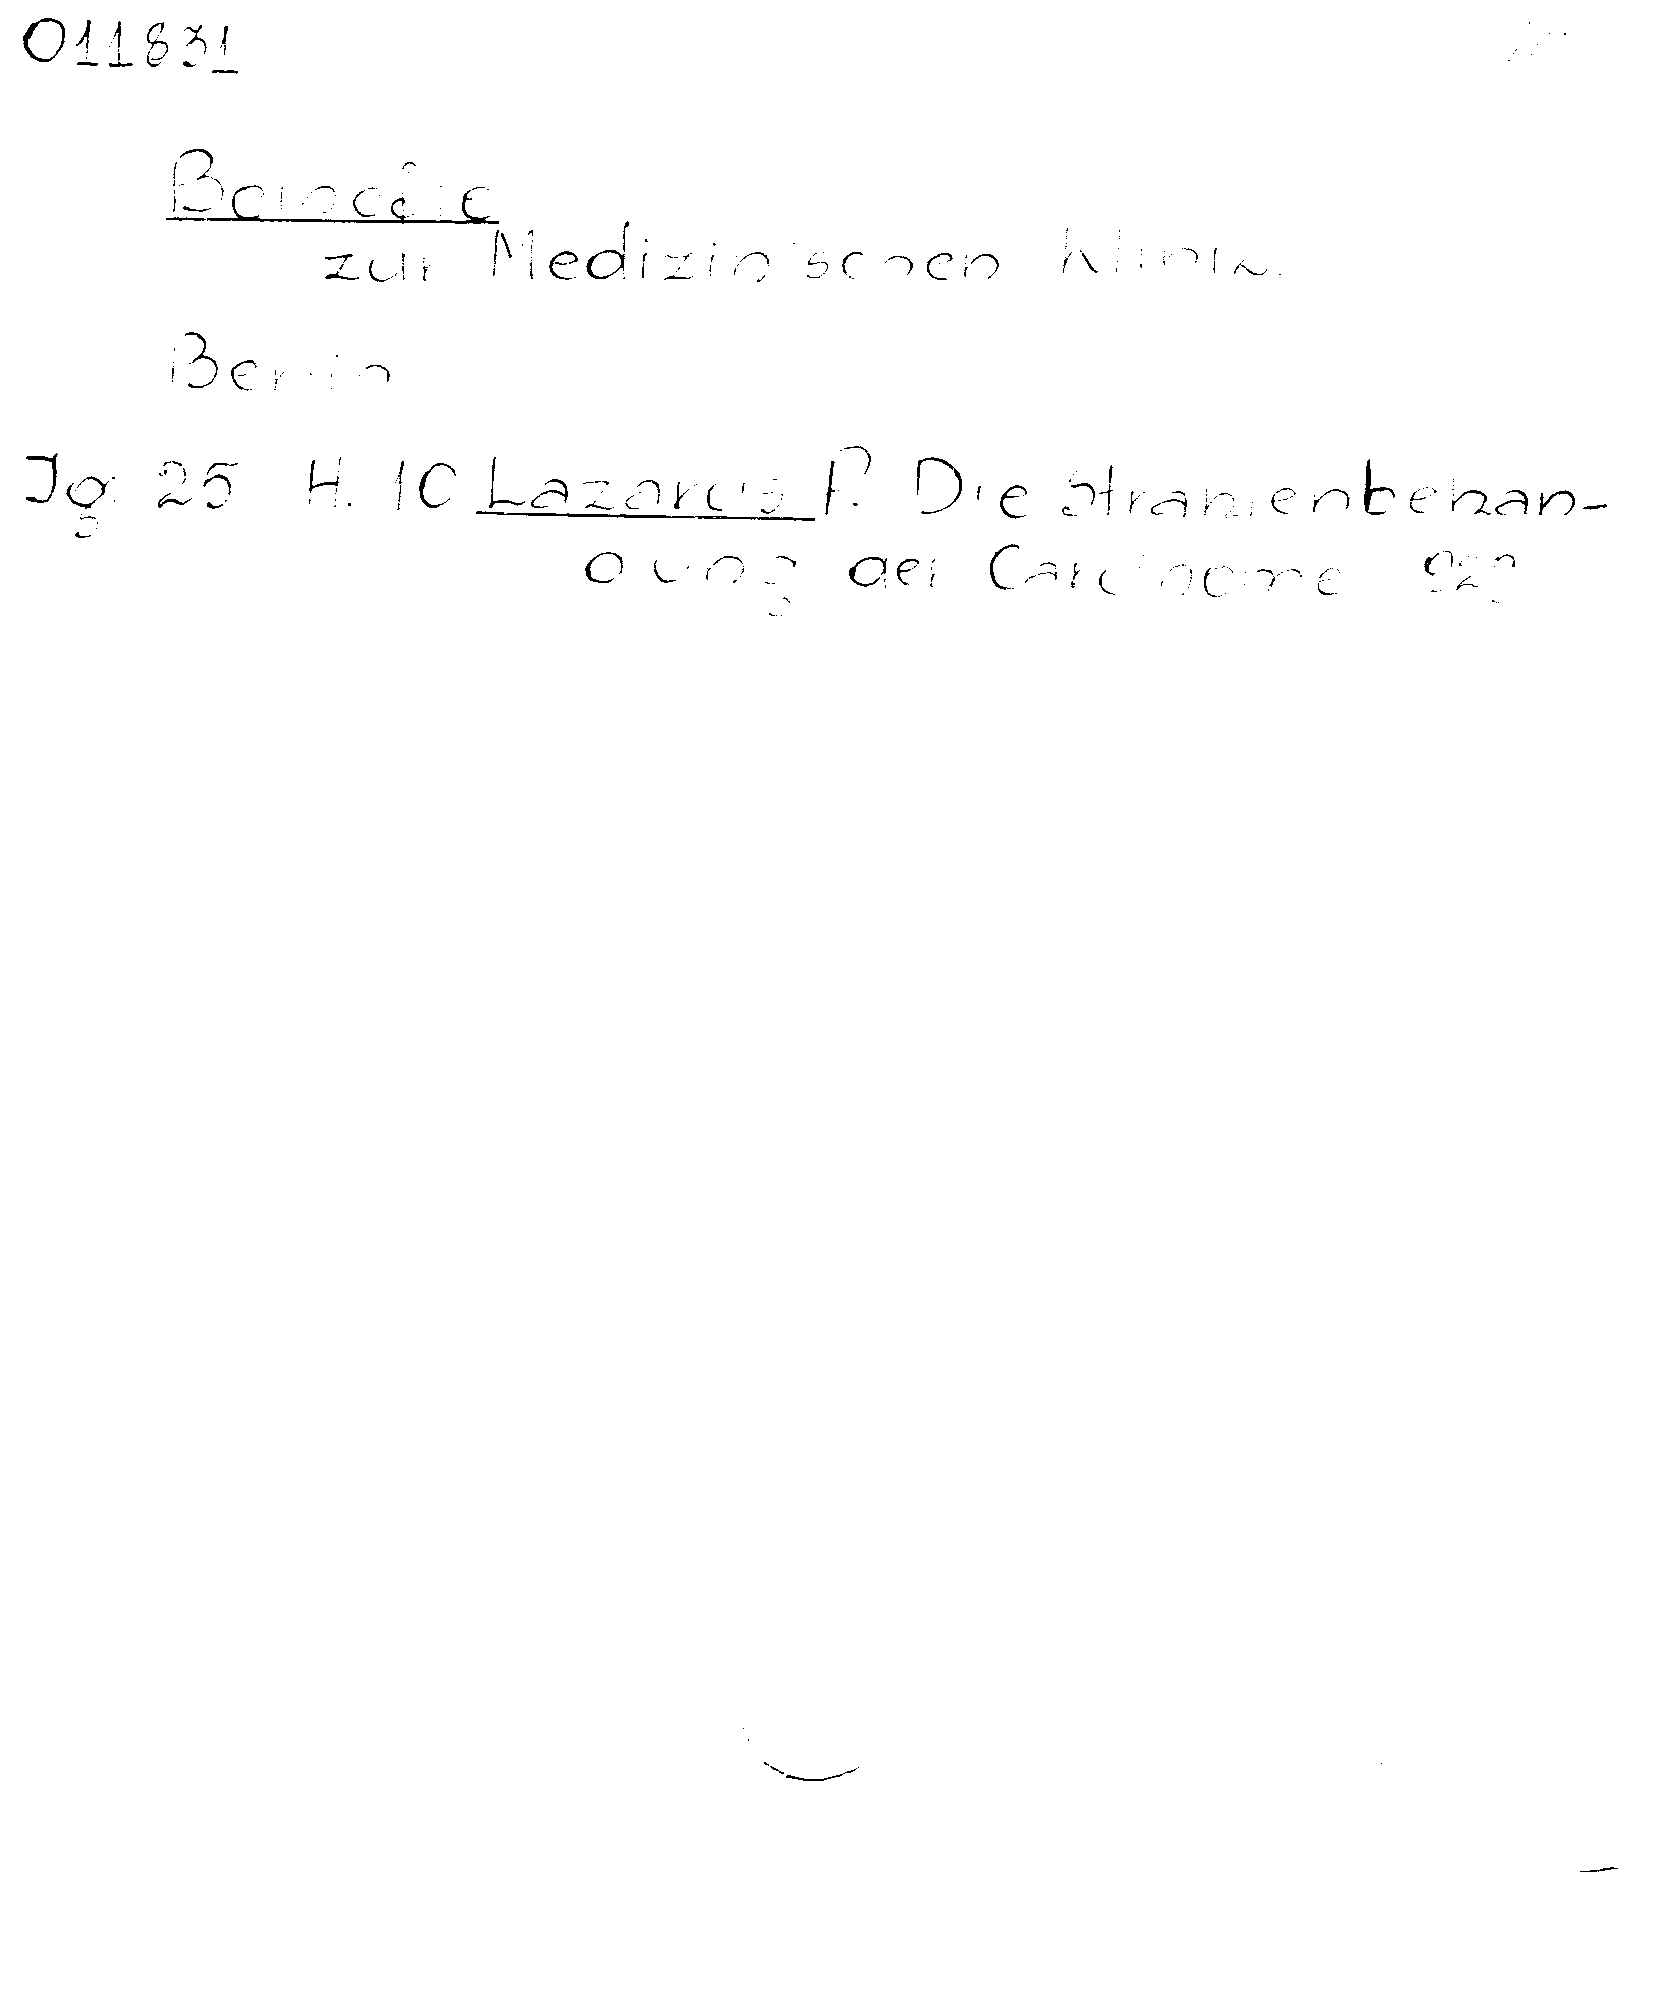 011831
Beihefte
zur Medizinischen Klinik.
Berlin
Jg. 25 H. 10 Lazarus P. Die Strahlenbehan-
dlung der Carcinome